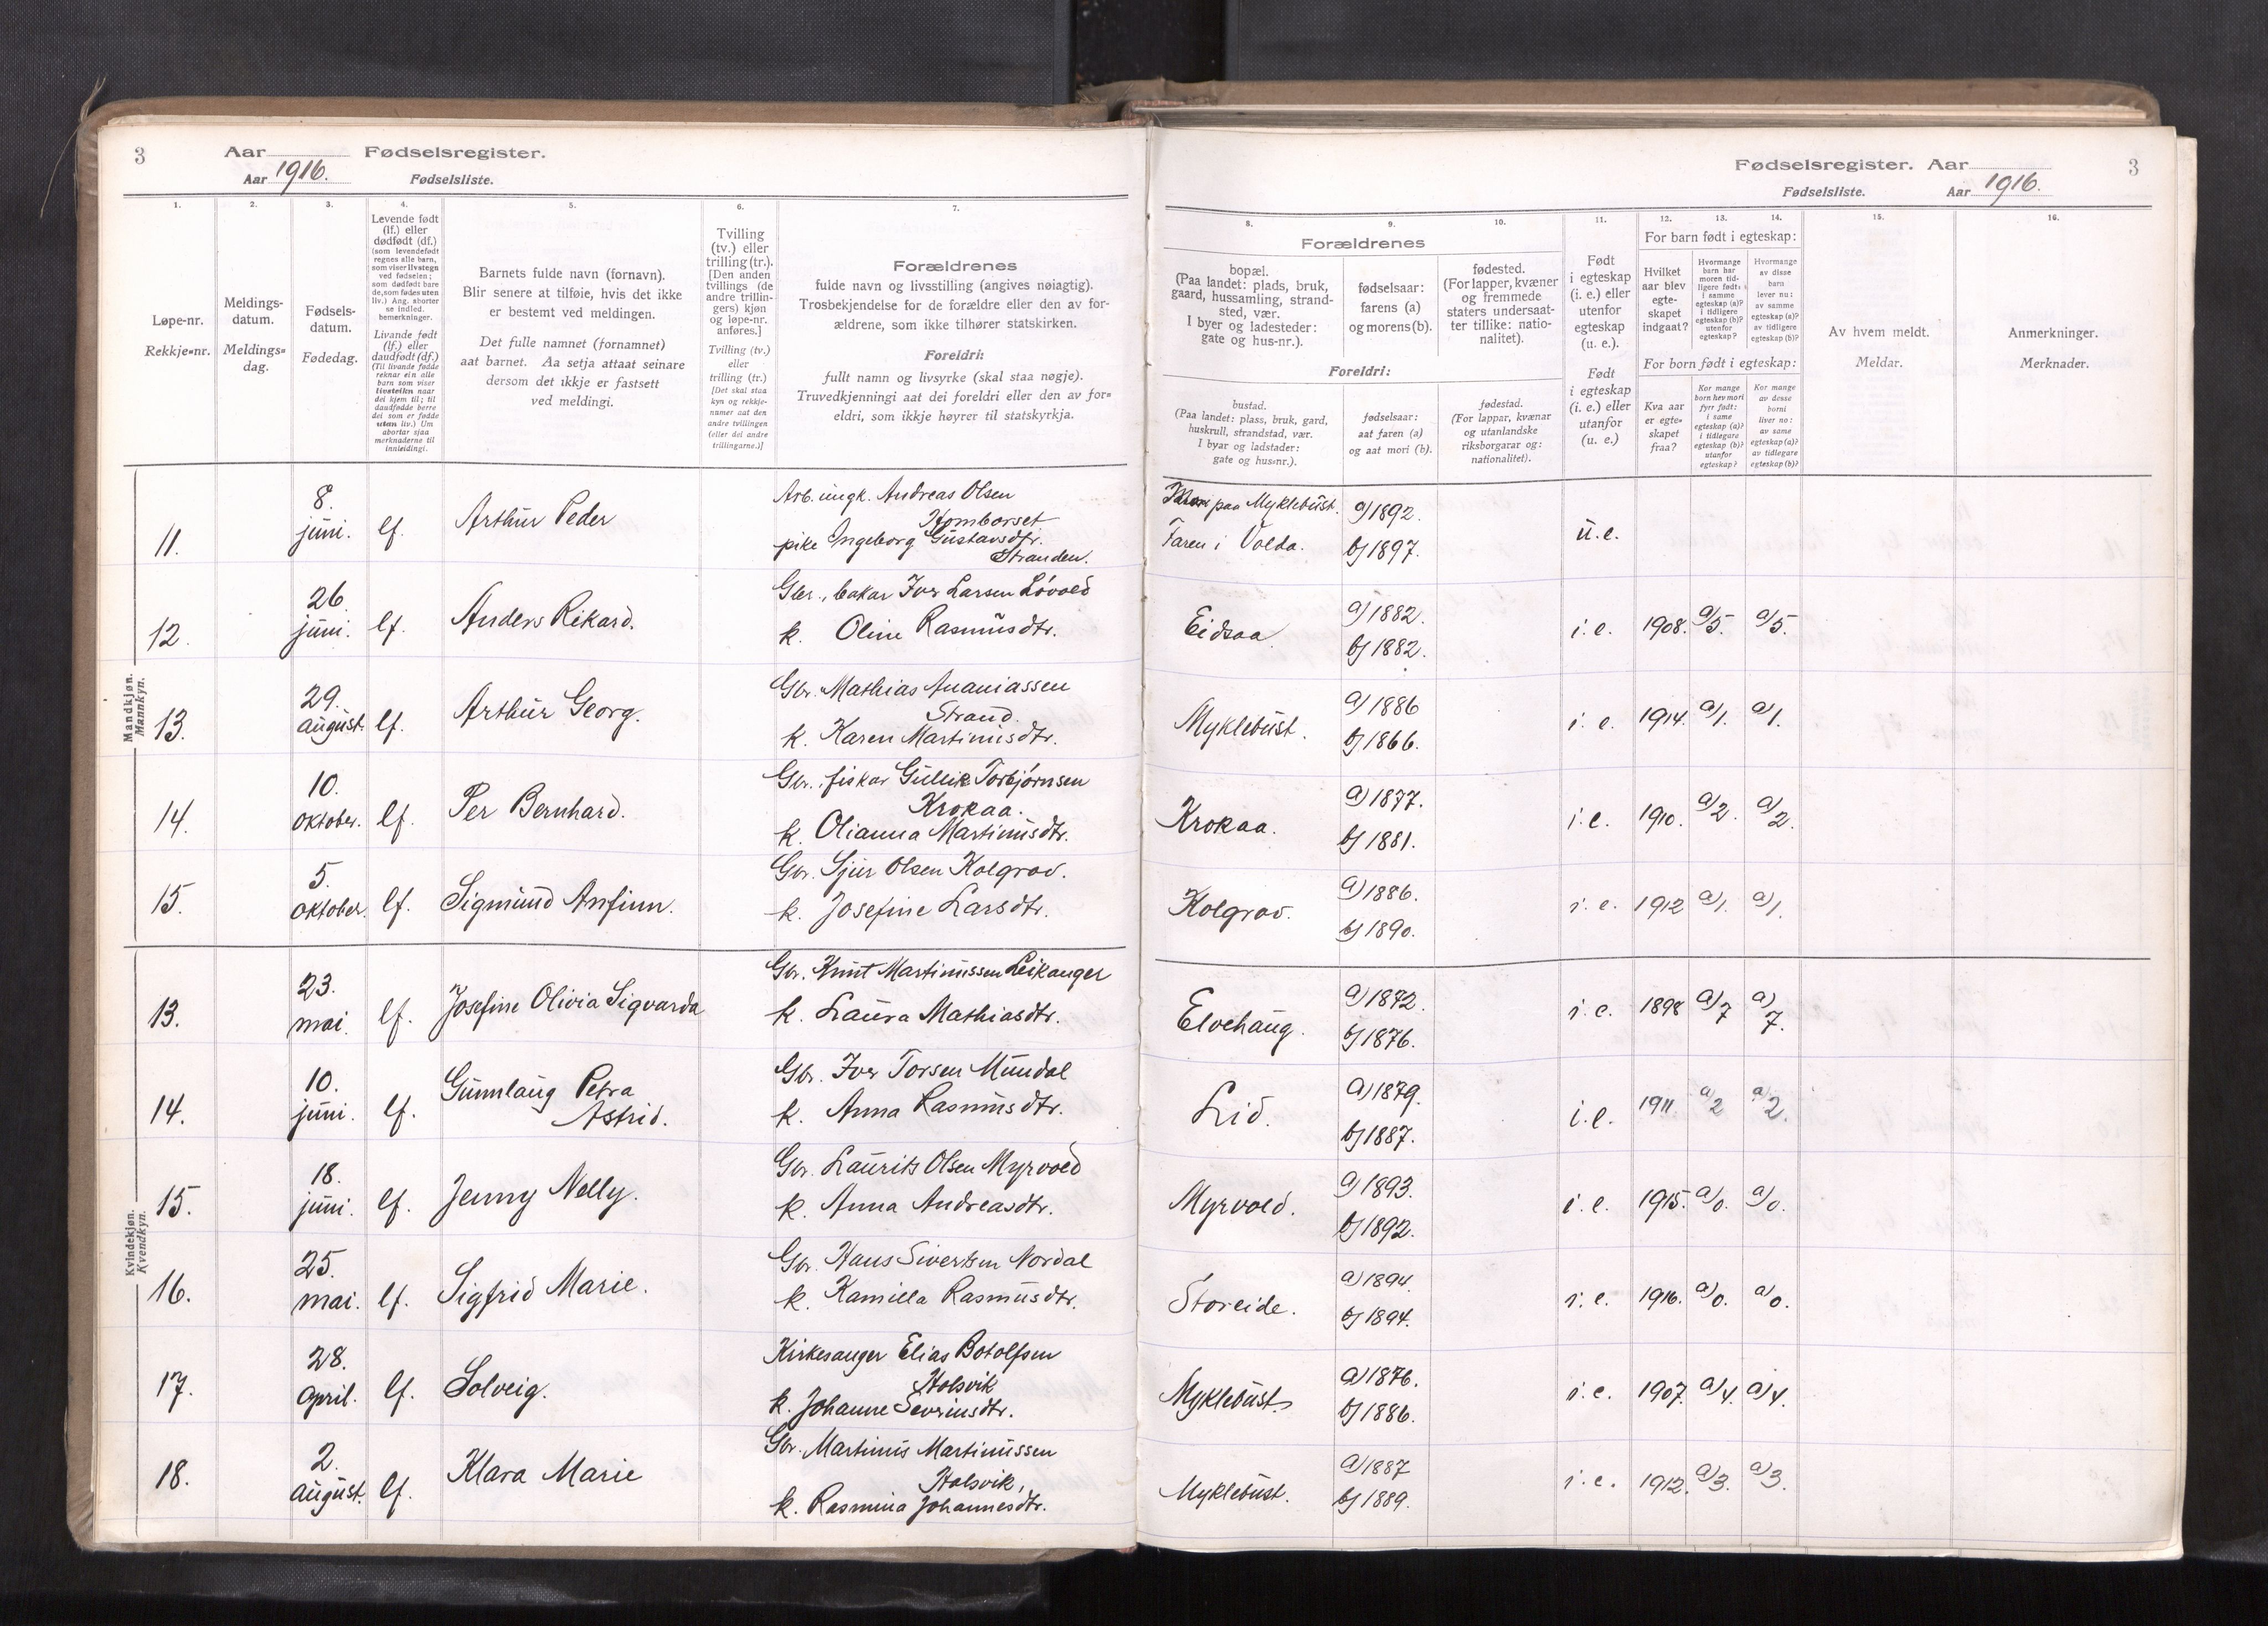 3
Aar Fødselsregister.
Aar 1916. Fødselsliste.
1.
2.
3.
4.
5.
6.
7.
Løpe-nr.
Rekkje-nr.
Meldings-
datum.
Meldings-
dag.
Fødsels-
datum.
Fødedag.
Levende født
(lf.) eller
dødfødt (df.)
(som levendefødt
regnes alle barn,
som viser livstegn
ved fødselen;
som dødfødt bare
de, som fødes uten
liv.) Ang. aborter
se indled.
bemerkninger.
Livande født
(lf.) eller
daudfødt (df.)
(Til livande fødde
reknar ein alle
barn som viser
livsteikn naar
dei kjem til; til
daudfødde berre
dei som er fødde
utan liv.) Um
abortar sjaa
merknaderne til
innleidingi.
Barnets fulde navn (fornavn).
Blir senere at tilføie, hvis det ikke
er bestemt ved meldingen.
Det fulle namnet (fornamnet)
aat barnet. Aa setja attaat seinare
dersom det ikkje er fastsett
ved meldingi.
Tvilling
(tv.) eller
trilling (tr.).
[Den anden
tvillings (de
andre trillin-
gers) kjøn
og løpe-nr.
anføres.]
Tvilling (tv.)
eller
trilling (tr.)
[Det skal staa
kyn og rekkje-
numer aat den
andre tvillingen
(eller dei andre
trillingarne.)]
Forældrenes
fulde navn og livsstilling (angives nøiagtig).
Trosbekjendelse for de forældre eller den av for-
ældrene, som ikke tilhører statskirken.
Foreldri:
fullt namn og livsyrke (skal staa nøgje).
Truvedkjenningi aat dei foreldri eller den av for-
eldri, som ikkje høyrer til statskyrkja.
Mandkjøn.
Mannkyn.
11. 8. juni. lf. Arthur Peder
Arb. ungk. Andreas Olsen
Homborset
pike Ingeborg Gustavsdtr.
Stranden.
12. 26 juni. lf. Anders Rikard.
Gbr., bakar Iver Larsen Løvold
k. Oline Rasmusdtr.
13. 29. august. lf. Arthur Georg.
Gbr. Mathias Ananiassen
Strand.
k. Karen Martinusdtr.
14. 10. oktober. lf. Per Bernhard.
Gbr., fiskar Gullik Torbjørnsen
Krokaa.
k. Olianna Martinusdtr.
15. 5. oktober. lf. Sigmund Anfinn.
Gbr. Sjur Olsen Kolgrov.
k. Josefine Larsdtr.
Kvindekjøn.
Kvendkyn.
13. 23. mai. lf. Josefine Olivia Sigvarda
Gbr. Knut Martinussen Leikanger
k. Laura Mathiasdtr.
14. 10. juni. lf. Gunnlaug Petra
Astrid.
Gbr. Iver Torsen Mundal
k. Anna Rasmusdtr.
15. 18. juni. lf. Jenny Nelly.
Gbr. Laurits Olsen Myrvold
k. Anna Andreasdtr.
16. 25. mai. lf. Sigfrid Marie.
Gbr. Hans Sivertsen Nordal
k. Kamilla Rasmusdtr.
17. 28. april. lf. Solveig.
Kirkesanger Elias Botolfsen
Holsvik
k. Johanne Sevrinsdtr.
18. 2. august. lf. Klara Marie
Gbr. Martinus Martinussen
Holsvik,
k. Rasmina Johannesdtr.
Fødselsregister. Aar 3
Fødselsliste. Aar 1916.
8.
9.
10.
11.
12.
13.
14.
15.
16.
Forældrenes
bopæl.
(Paa landet: plads, bruk,
gaard, hussamling, strand-
sted, vær.
I byer og ladesteder:
gate og hus-nr.).
fødselsaar:
farens (a)
og morens (b).
fødested.
(For lapper, kvæner
og fremmede
staters undersaat-
ter tillike: natio-
nalitet).
Foreldri:
bustad.
(Paa landet: plass, bruk, gard,
huskrull, strandstad, vær.
I byar og ladstader:
gate og hus-nr.).
fødselsaar:
aat faren (a)
og aat mori (b).
fødestad.
(For lappar, kvænar
og utanlandske
riksborgarar og:
nationalitet).
Født
i egteskap
(i. e.) eller
utenfor
egteskap
(u. e.).
Født
i egteskap
(i. e.) eller
utanfor
(u. e.)
For barn født i egteskap:
Hvilket
aar blev
egte-
skapet
indgaat?
Hvormange
barn har
moren tid-
ligere født:
i samme
egteskap (a)?
i tidligere
egteskap (b)?
utenfor
egteskap?
Hvormange
av disse
barn
lever nu:
av samme
egteskap (a)?
av tidligere
egteskap (b)?
For born født i egteskap:
Kva aar
er egte-
skapet
fraa?
Kor mange
born hev mori
fyrr født:
i same
egteskap (a)?
i tidlegare
egteskap (b)?
utanfor
egteskap?
Kor mange
av desse
borni
liver no:
av same
egteskap (a)?
av tidlegare
egteskap (b)?
Av hvem meldt.
Meldar.
Anmerkninger.
Merknader.
paa Myklebust. a) 1892. u. e.
Faren i Volda. b) 1897.
Eidsaa a) 1882. i. e. 1908. a) 5. a) 5.
b) 1882.
Myklebust. a) 1886 i. e. 1914. a) 1. a) 1.
b) 1866.
Krokaa. a) 1877. i. e. 1910. a) 2. a) 2.
b) 1881.
Kolgrov. a) 1886. i. e. 1912 a) 1. a) 1.
b) 1890.
Elvehaug. a) 1872. i. e. 1898 a) 7 a) 7.
b) 1876.
Lid. a) 1879. i. e. 1911 a) 2 a) 2.
b) 1887.
Myrvold. a) 1893. i. e. 1915. a) 0. a) 0.
b) 1892.
Storeide. a) 1894. i. e. 1916. a) 0. a) 0.
b) 1894.
Myklebust a) 1876. i. e. 1907. a) 4. a) 4.
b) 1886.
Myklebust. a) 1887 i. e. 1912. a) 3. a) 3.
b) 1889.